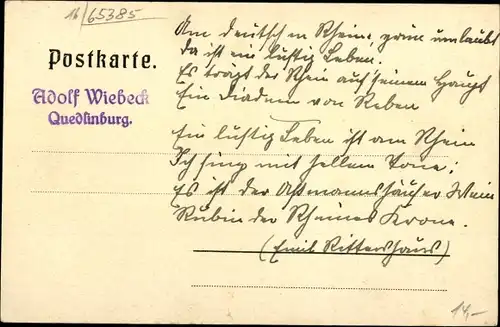 16/65385
Postkarte.
Adolf Wiebeck
Quedlinburg.
Am deutschen Rhein, grün umlaubt
Da ist ein lustig Leben.
Es trägt der Rhein auf seinem Haupt
Ein Diadem von Reben
Ein lustig Leben ist am Rhein
Ich sing mit hellem Tone;
Es ist der Aßmannshäuser Wein
Rubin der Rheines Krone.
(Emil Rittershaus)
14,-